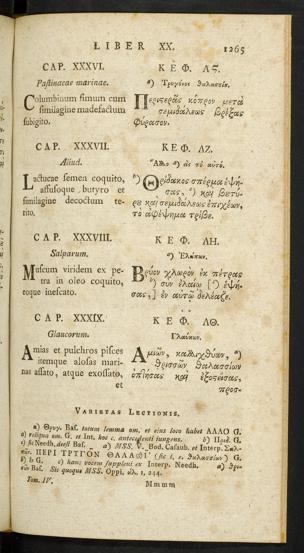 LIBER XX. 1265
CAP. XXXVI.
Pastinacae marinae.
Columbinum fimum cum
similagine madefactum
subigito.
CAP. XXXVII.
Aliud.
Lactucae semen coquito,
assusoque butyro et
similagine decoctum te-
rito.
CAP. XXXVIII.
Salparum.
Muscum viridem ex pe-
tra in oleo coquito,
eoque inescato.
CAP. XXXIX.
Glaucorum.
Amias et pulchros pisces
itemque alosas mari-
nas assato, atque exossato,
et
ΚΕΦ. Λϛ.
ᵃ) Τρυγόνος θαλασσίας.
Περιστερᾶς κόπρον μετὰ
σεμιδάλεως βρέξας
φύρασον.
ΚΕΦ. ΛΖ.
Ἄλλο ᵃ) εἰς τὸ αὐτό.
ᵇ) Θρίδακος σπέρμα ἑψή-
σας, ᶜ) καὶ βετύ-
ρῳ καὶ σεμιδάλεως ἐπιχέων,
τὸ ἀφέψημα τρίβε.
ΚΕΦ. ΛΗ.
Βρύον χλωρὸν ἐκ πέτρας
ᵇ) σὺν ἐλαίῳ ᶜ) ἑψή-
σας, ἐν αὐτῷ δελέαζε.
ΚΕΦ. ΛΘ.
Γλαύκων.
Ἀμιῶν, καλλιχθύων, ᵃ)
θρισσῶν θαλασσίων
ὀπτήσας καὶ ἐξοστέσας,
προσ-
VARIETAS LECTIONIS.
a) Θρυγ. Bas. totum lemma om. et eius loco habet ΑΛΛΟ G.
a) reliqua om. G. et Int. hoc c. antecedenti iungens. b) Πριδ. G.
c) fic Needh. deest Bas. a) MSS. V. Bod. Casaub. et Interp. Σαλ-
b) Is G. c) hanc vocem supplevi ex Interp. Needh. a) Θρι-
Bas. Sic quoque MSS. Oppi. ἁλ. 1, 244.
Tom. IV. Mmmm